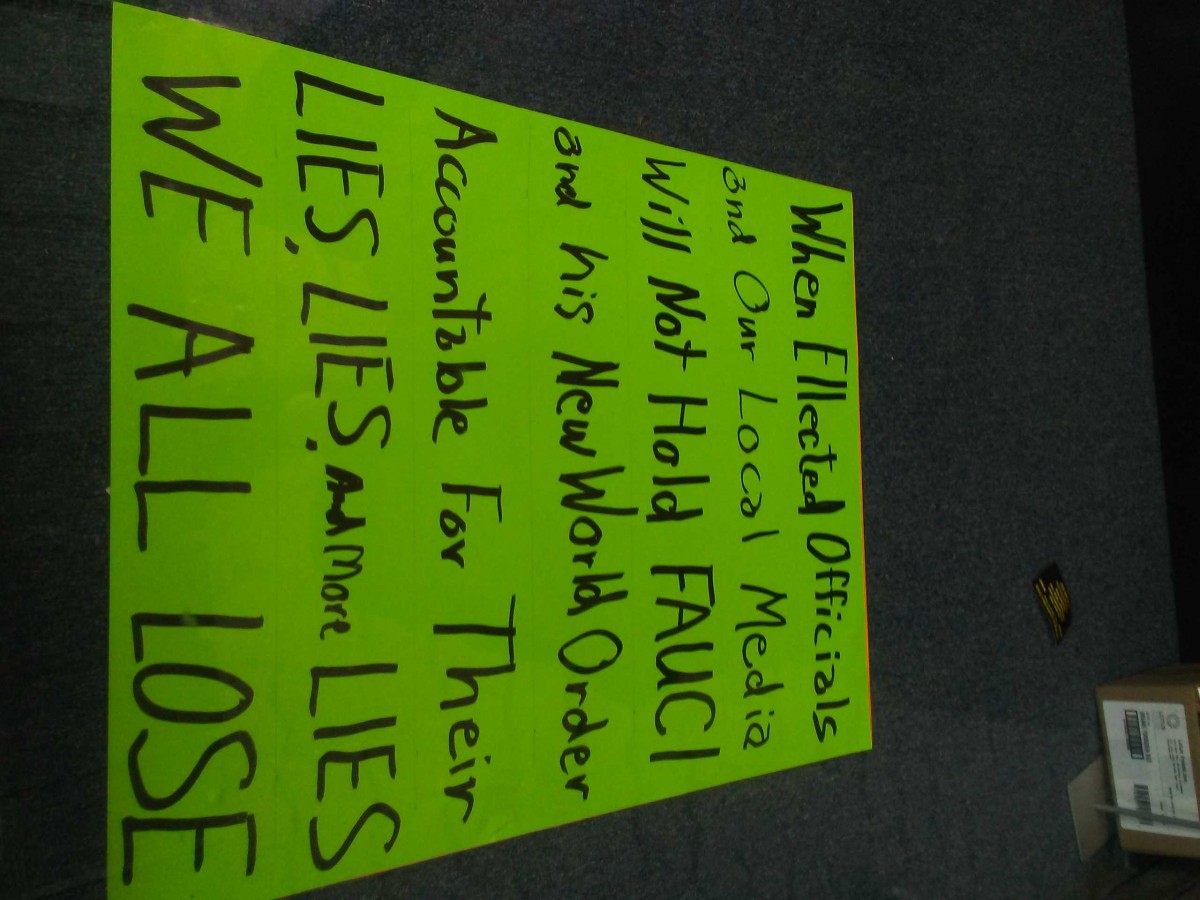 When Ellected Officials
and Our Local Media
Will Not Hold FAUCI
and his New World Order
Accountable For Their
LIES, LIES, And More LIES
WE ALL LOSE